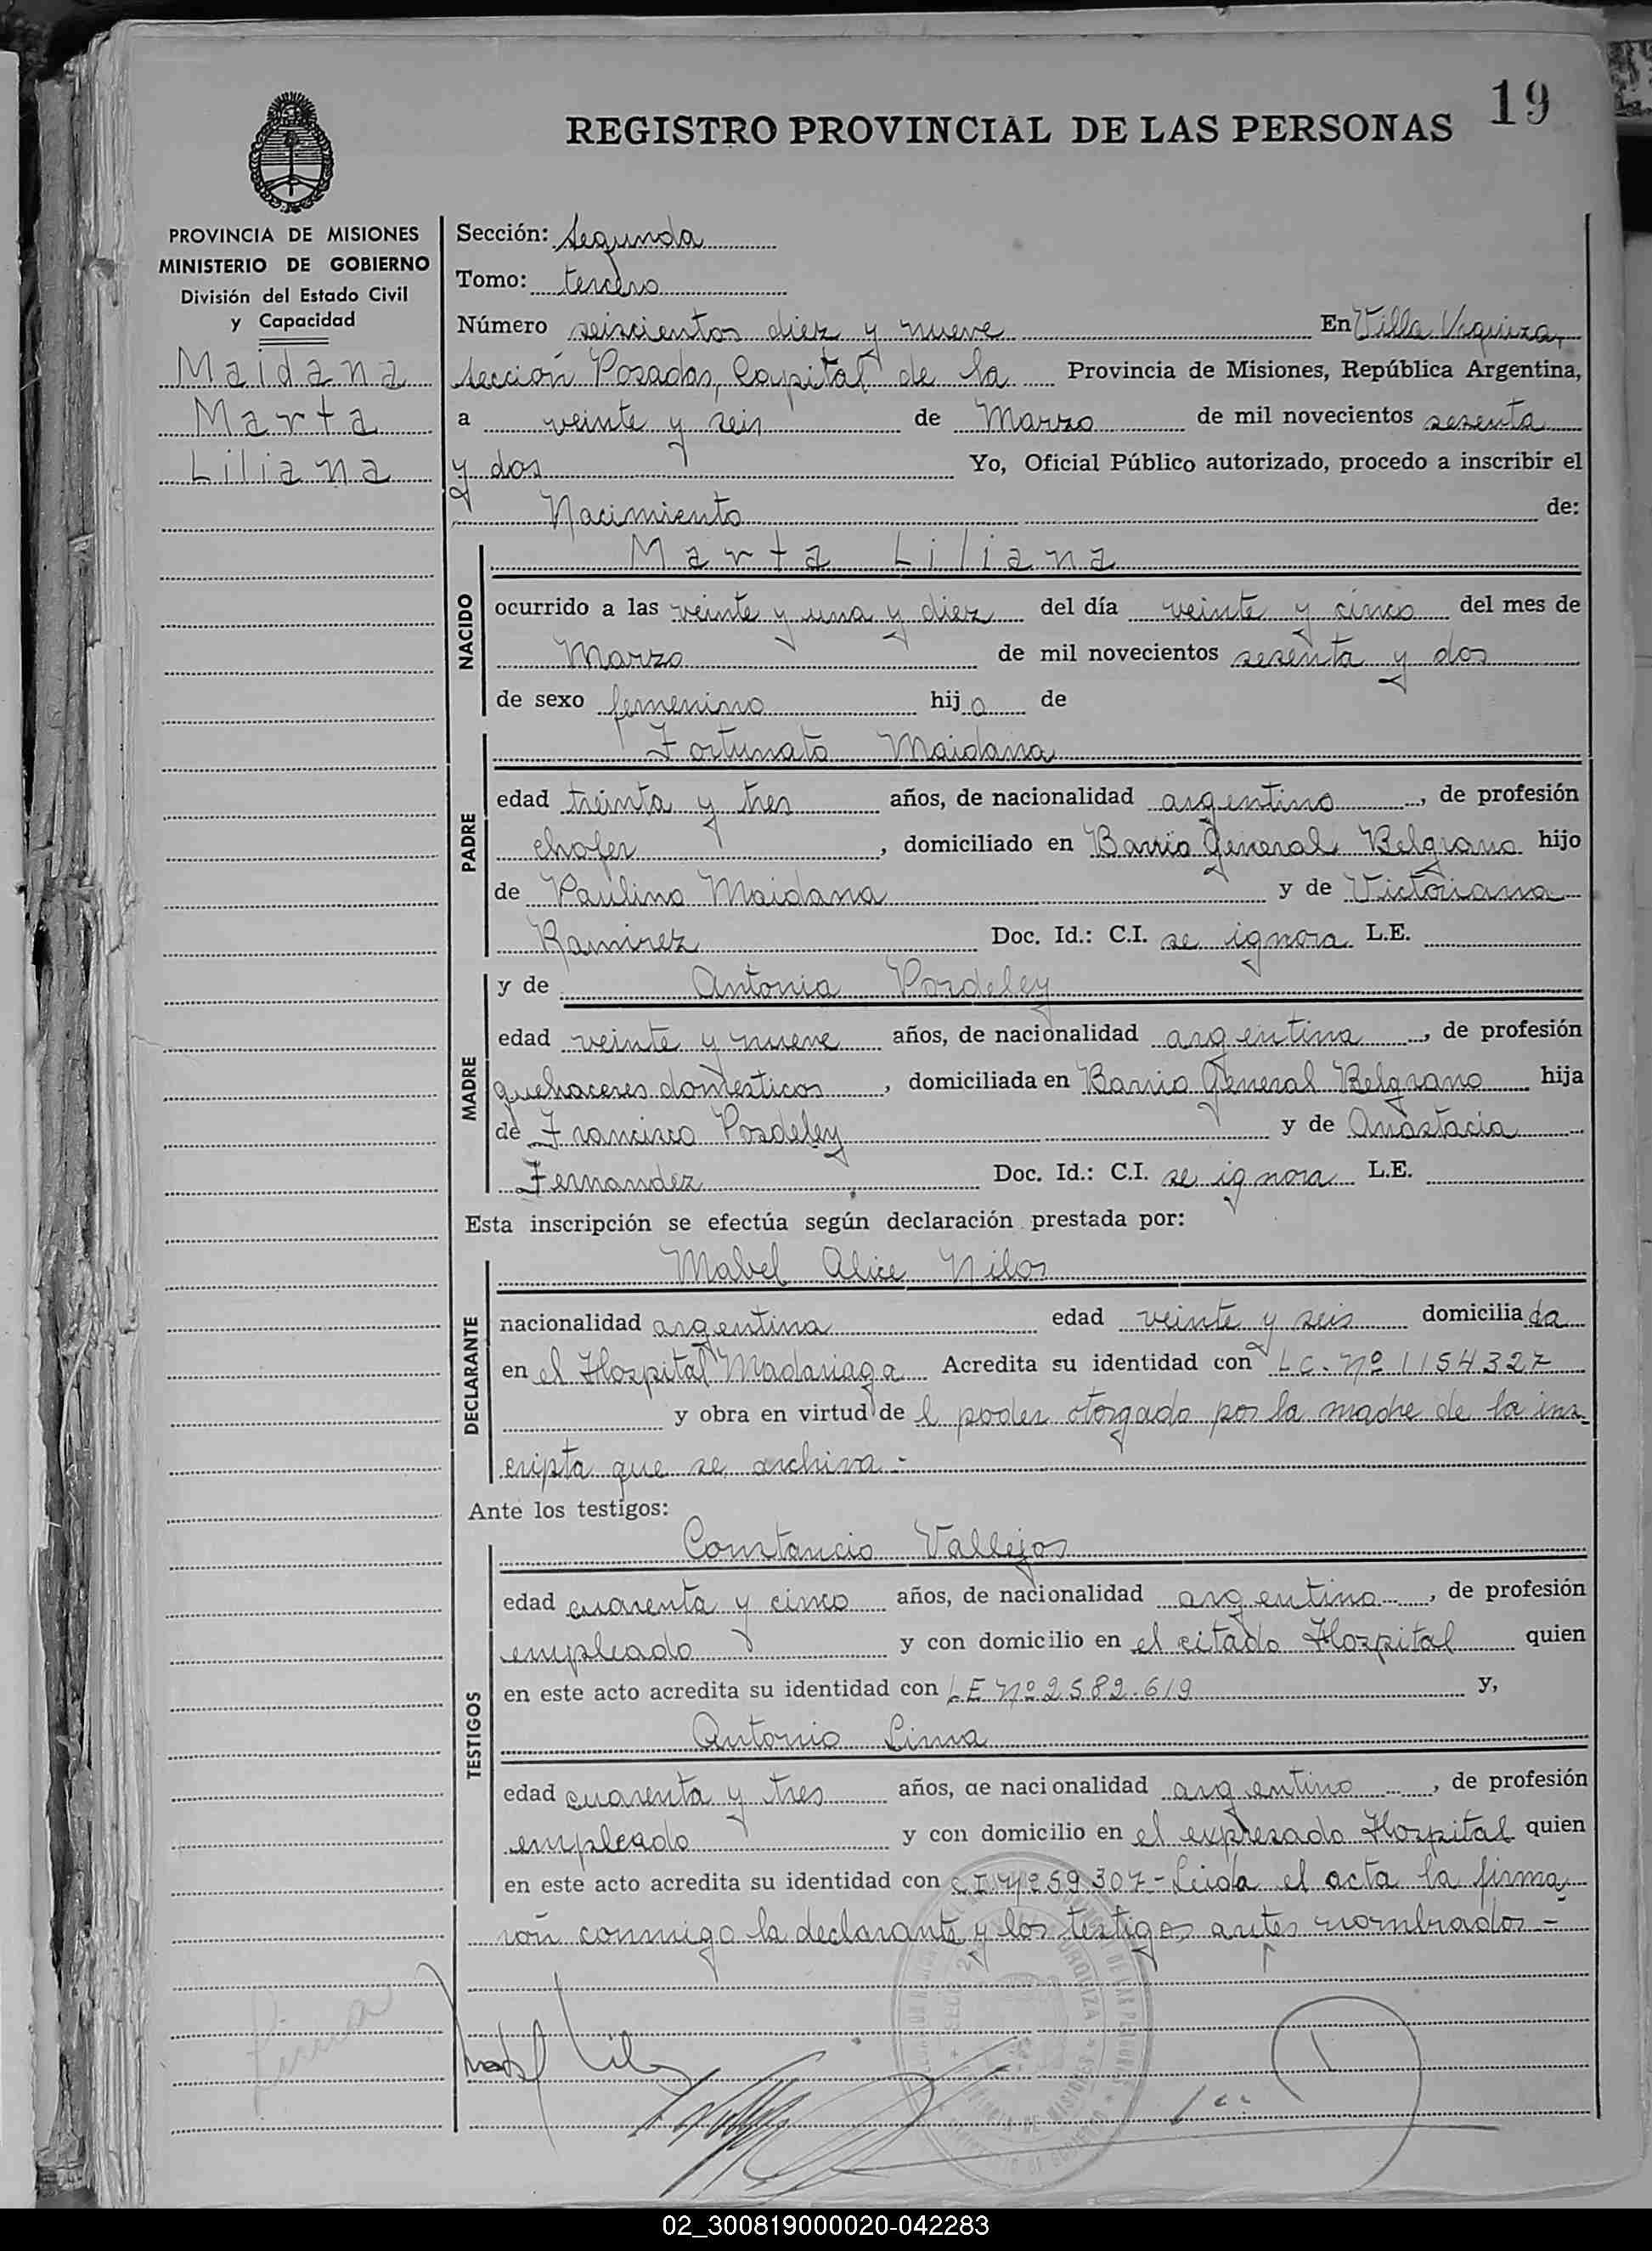 19
REGISTRO PROVINCIAL DE LAS PERSONAS
PROVINCIA DE MISIONES
MINISTERIO DE GOBIERNO
División del Estado Civil
y Capacidad
Maidana
Marta
Liliana
Sección: Segunda
Tomo: tercero
Número seiscientos diez y nueve En Villa Urquiza,
sección Posadas, Capital de la Provincia de Misiones, República Argentina,
a veinte y seis de Marzo de mil novecientos sesenta
y dos Yo, Oficial Público autorizado, procedo a inscribir el
Nacimiento de:
NACIDO
Marta Liliana
ocurrido a las veinte y una y diez del día veinte y cinco del mes de
Marzo de mil novecientos sesenta y dos
de sexo femenino hija de
PADRE
Fortunato Maidana
edad treinta y tres años, de nacionalidad argentino, de profesión
chofer, domiciliado en Barrio General Belgrano hijo
de Paulino Maidana y de Victoriana
Ramirez Doc. Id.: C.I. se ignora L.E.
MADRE
y de Antonia Posdeley
edad veinte y nueve años, de nacionalidad argentina, de profesión
quehaceres domésticos, domiciliada en Barrio General Belgrano hija
de Francisco Posdeley y de Anastacia
Fernandez Doc. Id.: C.I. se ignora L.E.
Esta inscripción se efectúa según declaración prestada por:
DECLARANTE
Mabel Alice Nilos
nacionalidad argentina edad veinte y seis domiciliada
en el Hospital Madariaga Acredita su identidad con L.C. Nº 1154327
y obra en virtud del poder otorgado por la madre de la ins-
cripta que se archiva.-
Ante los testigos:
TESTIGOS
Constancio Vallejos
edad cuarenta y cinco años, de nacionalidad argentino, de profesión
empleado y con domicilio en el citado Hospital quien
en este acto acredita su identidad con LE Nº 2.582.619 y,
Antonio Lima
edad cuarenta y tres años, de nacionalidad argentino, de profesión
empleado y con domicilio en el expresado Hospital quien
en este acto acredita su identidad con C.I. Nº 259.307 - Leída el acta la firma-
rón conmigo la declarante y los testigos antes nombrados.-
Lima
02_300819000020-042283